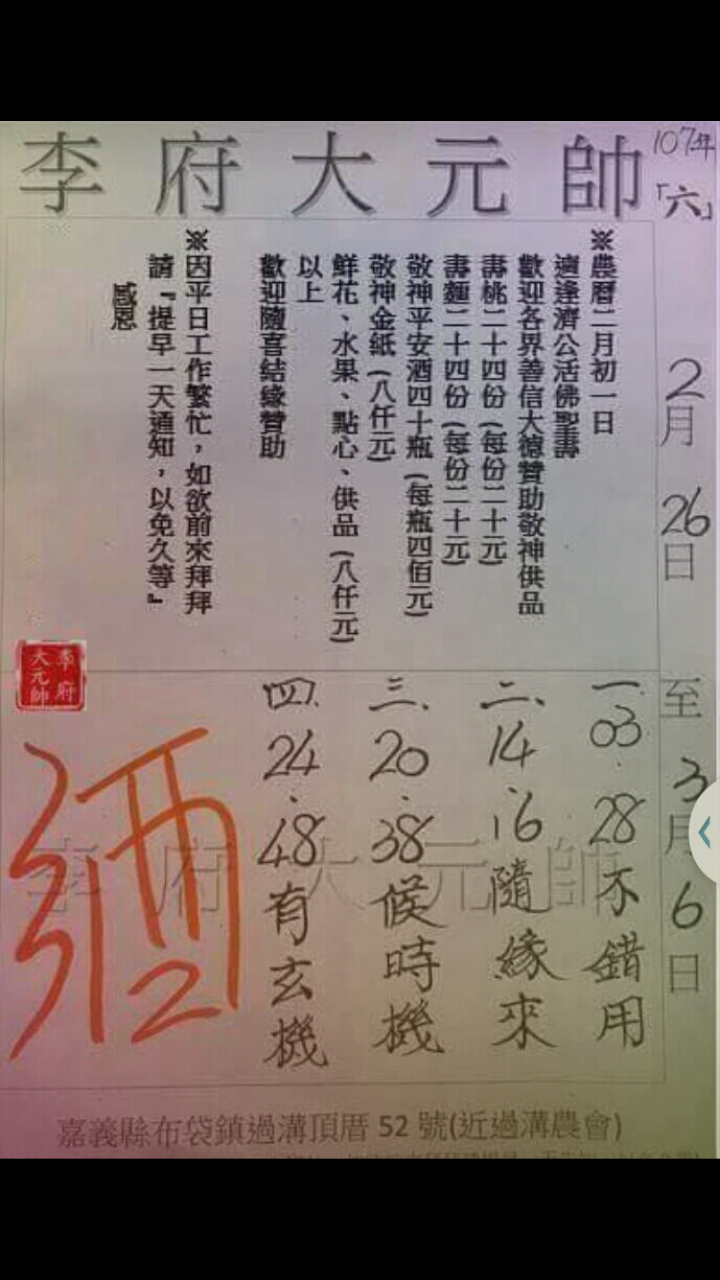 李府大元帥
107年
「六」
2月26日至3月6日
※農曆二月初一日
適逢濟公活佛聖壽
歡迎各界善信大德贊助敬神供品
壽桃二十四份(每份二十元)
壽麵二十四份(每份二十元)
敬神平安酒四十瓶(每瓶四佰元)
敬神金紙(八仟元)
鮮花、水果、點心、供品(八仟元)
以上
歡迎隨喜結緣贊助
※因平日工作繁忙，如欲前來拜拜
請『提早一天通知，以免久等』
感恩
李府
大元帥
一.03.28不錯用
二、14.16隨緣來
三.20.38候時機
四.24.48有玄機
李府大元帥
嘉義縣布袋鎮過溝頂厝52號(近過溝農會)